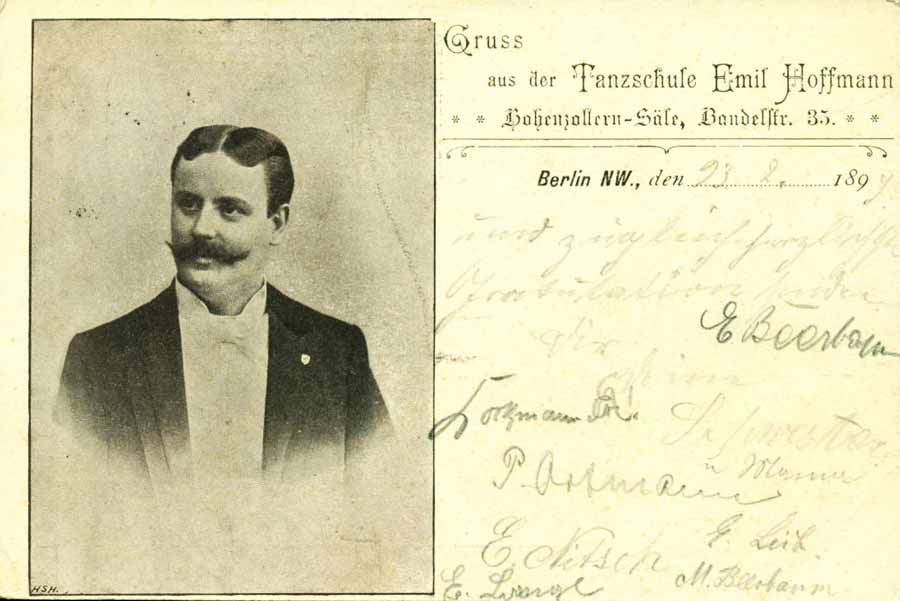 Gruss
aus der Tanzschule Emil Hoffmann
* * Hohenzollern-Säle, Bandelstr. 35. * *
Berlin NW., den 23 2. 1897
und zugleich herzlichste
Gratulation
Dir
E Beerbaum
Deine
Schwester
P. Ortmann
u Mama
E. Nitsch
G. Leib.
E. Lange
M. Beerbaum
HSH.